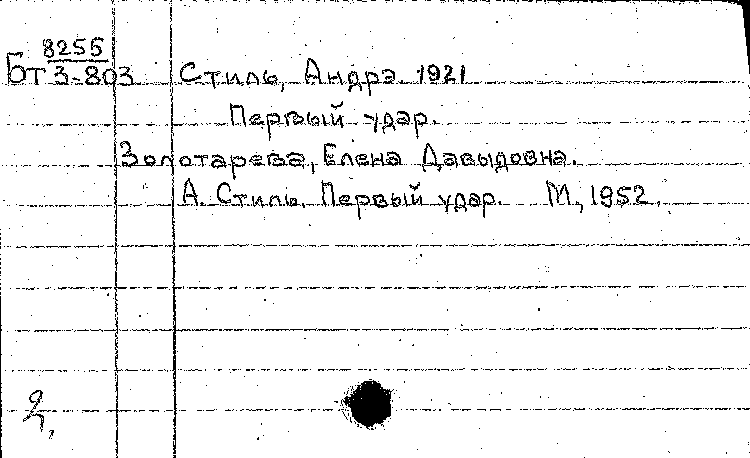 8255
Бт 3-803 Стиль, Андрэ. 1921
Первый удар.
Золотарева, Елена Давыдовна.
А. Стиль. Первый удар. М, 1952.